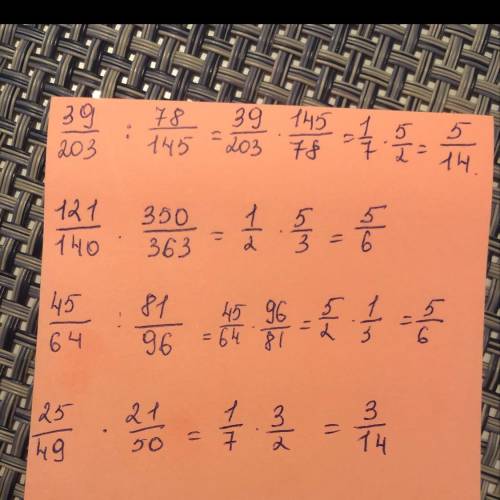 39/203 : 78/145 = 39/203 · 145/78 = 1/7 · 5/2 = 5/14.
121/140 · 350/363 = 1/2 · 5/3 = 5/6
45/64 : 81/96 = 45/64 · 96/81 = 5/2 · 1/3 = 5/6
25/49 · 21/50 = 1/7 · 3/2 = 3/14